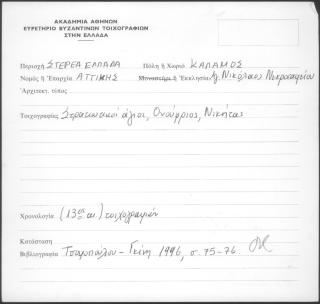 ΑΚΑΔΗΜΙΑ ΑΘΗΝΩΝ
ΕΥΡΕΤΗΡΙΟ ΒΥΖΑΝΤΙΝΩΝ ΤΟΙΧΟΓΡΑΦΙΩΝ
ΣΤΗΝ ΕΛΛΑΔΑ
Περιοχή ΣΤΕΡΕΑ ΕΛΛΑΔΑ Πόλη ἢ Χωριό ΚΑΛΑΜΟΣ
Νομός ἢ Ἐπαρχία ΑΤΤΙΚΗΣ Μοναστήρι ἢ Ἐκκλησία Άγ. Νικόλαος Νεκροταφείου
Ἀρχιτεκτ. τύπος
Τοιχογραφίες Στρατιωτικοί άγιοι, Ονούφριος, Νικήτας
Χρονολογία (13ος αι.) τοιχογραφιών
Κατάσταση
Βιβλιογραφία 1996, σ. 75-76.